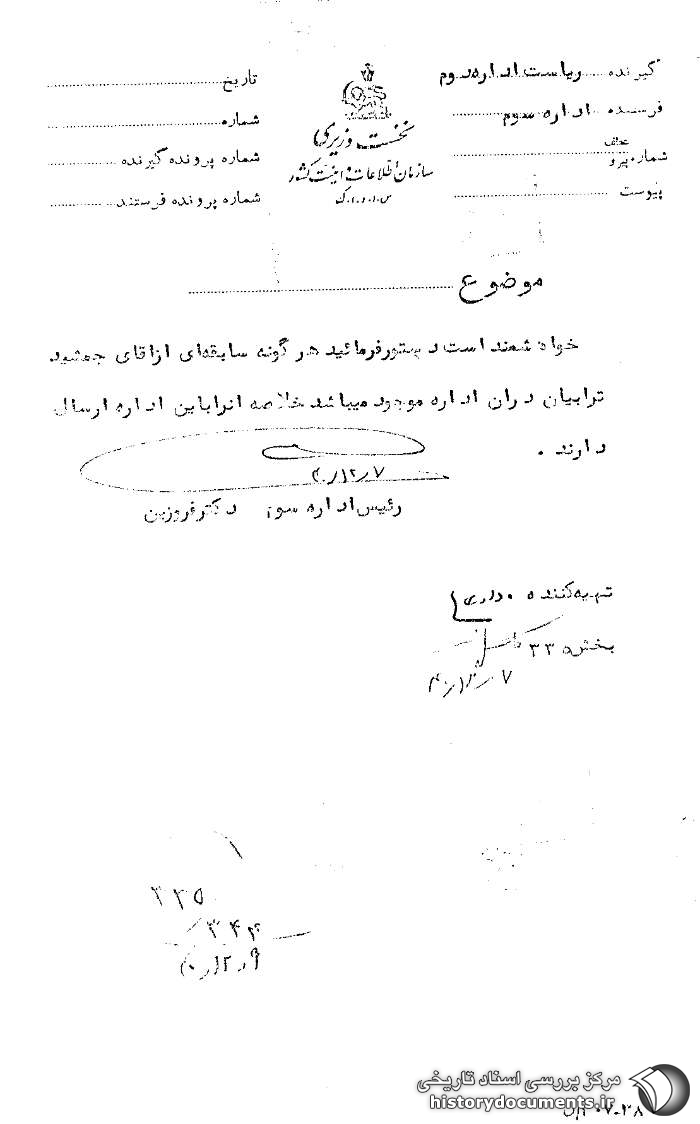 گیرنده ریاست اداره دوم
فرسنده اداره سوم
عطف
شماره پیرو
پیوست
نخست وزیری
سازمان اطلاعات و امنیت کشور
س.ا.و.ا.ک
تاریخ
شماره
شماره پرونده گیرنده
شماره پرونده فرستنده
موضوع
خواهشمند است دستور فرمائید هر گونه سابقه‌ای از اقای جمشید
ترابیان در ان اداره موجود میباشد خلاصه انرا باین اداره ارسال
دارند .
رئیس اداره سوم دکتر فروزین
تهیه کننده
بخش ۳۳
۳۳۵
۳۴۴
مرکز بررسی اسناد تاریخی
historydocuments.ir